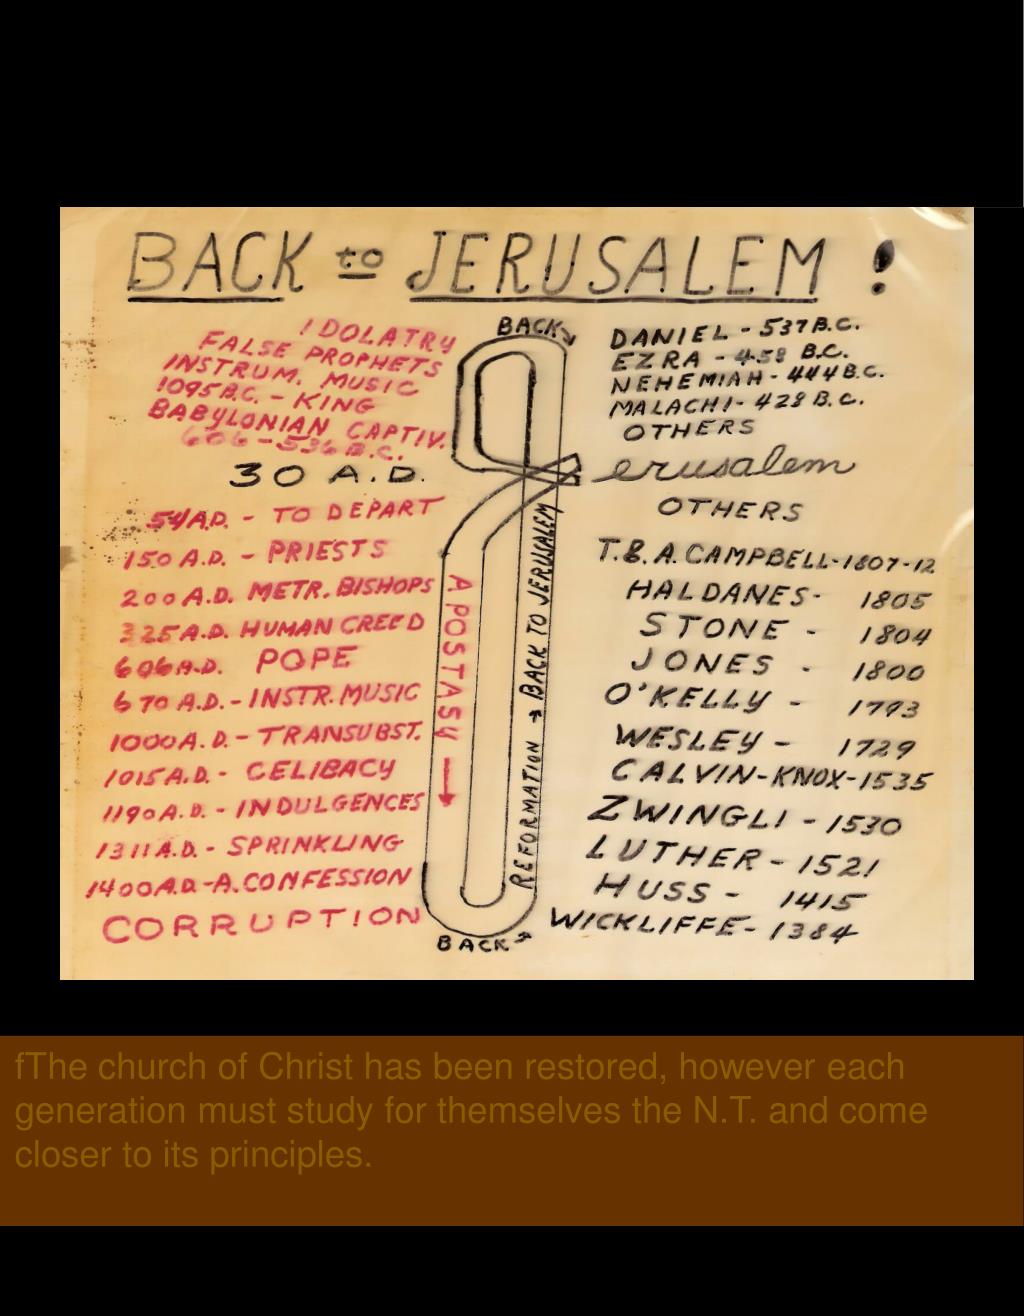 BACK to JERUSALEM !
IDOLATRY
FALSE PROPHETS
INSTRUM. MUSIC
1095 B.C. - KING
BABYLONIAN CAPTIV.
606 - 536 B.C.
30 A.D.
54 A.D. - TO DEPART
150 A.D. - PRIESTS
200 A.D. METR. BISHOPS
325 A.D. HUMAN CREED
606 A.D. POPE
670 A.D. - INSTR. MUSIC
1000 A.D. - TRANSUBST.
1015 A.D. - CELIBACY
1190 A.D. - INDULGENCES
1311 A.D. - SPRINKLING
1400 A.D. - A. CONFESSION
CORRUPTION
BACK
APOSTASY
REFORMATION → BACK TO JERUSALEM
BACK
DANIEL - 537 B.C.
EZRA - 458 B.C.
NEHEMIAH - 444 B.C.
MALACHI - 428 B.C.
OTHERS
erusalem
OTHERS
T. & A. CAMPBELL - 1807-12
HALDANES - 1805
STONE - 1804
JONES - 1800
O'KELLY - 1793
WESLEY - 1729
CALVIN - KNOX - 1535
ZWINGLI - 1530
LUTHER - 1521
HUSS - 1415
WICKLIFFE - 1384
fThe church of Christ has been restored, however each
generation must study for themselves the N.T. and come
closer to its principles.